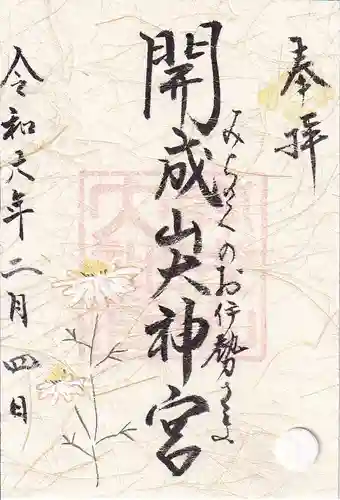 奉拝
みちのくのお伊勢さま
開成山大神宮
令和六年二月四日